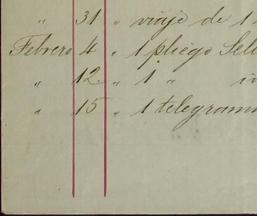 " 31 " viaje de 1
Febrero 4 " 1 pliego Sell
" 12 " 1 "
" 15 " 1 telegrama